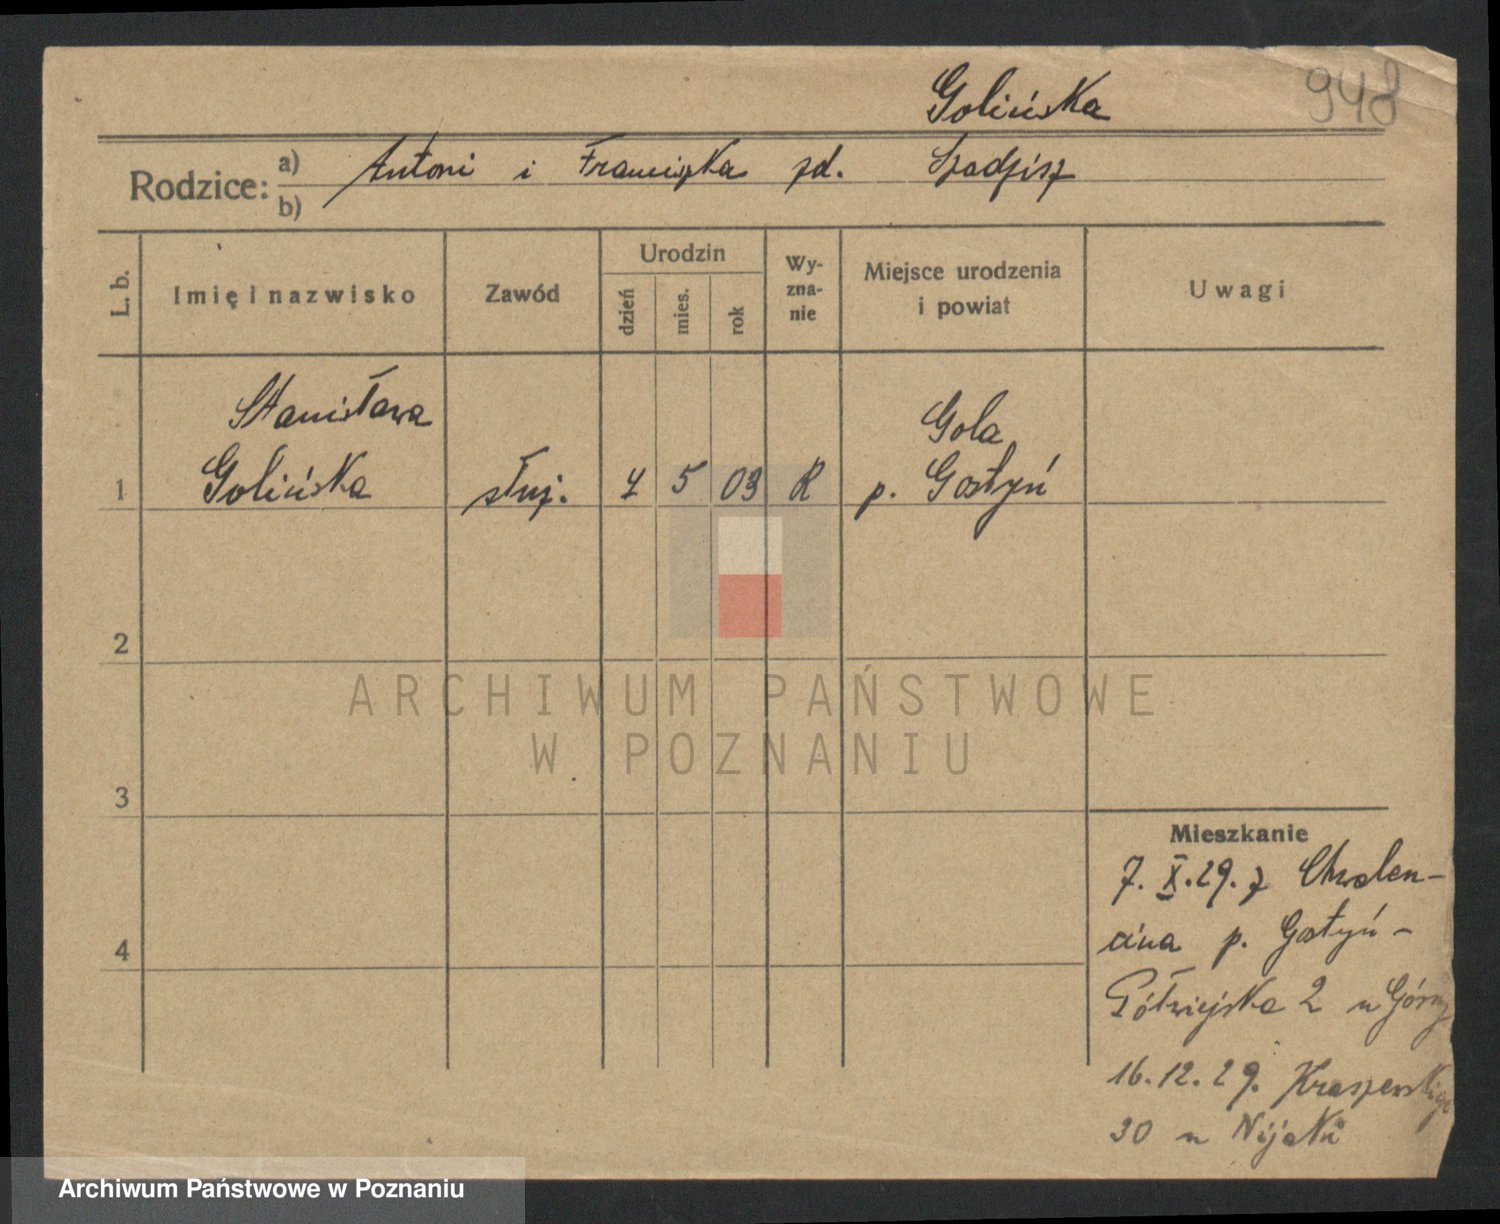 Golińska
948
Rodzice:
a) Antoni i Franciszka zd. Szadzisz
b)
L. b.
Imię i nazwisko
Zawód
Urodzin
dzień
mies.
rok
Wy-
zna-
nie
Miejsce urodzenia
i powiat
Uwagi
Stanisława
Gola
1 Golińska służ. 4 5 03 R p. Gostyń
2
3
4
ARCHIWUM PAŃSTWOWE
W POZNANIU
Mieszkanie
7. X. 29. z Chwalen-
cina p. Gostyń -
Półwiejska 2 u Górny
16. 12. 29. Kraszewskiego
30 u Nijaki
Archiwum Państwowe w Poznaniu